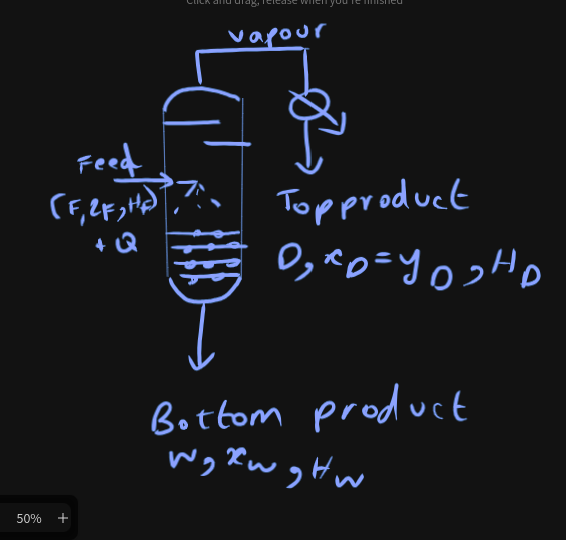 Click and drag, release when you're finished
vapour
Feed
(F, ZF, HF)
+ Q
Top product
D, xD = yD, HD
Bottom product
W, xW, HW
50% +